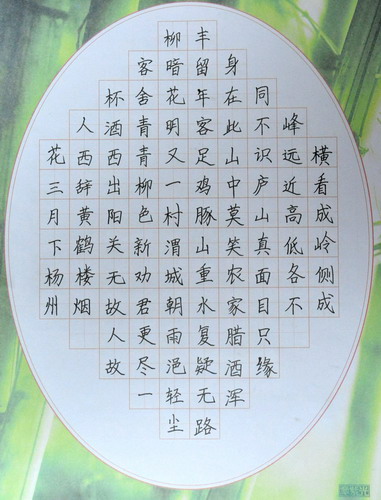 横看成岭侧成
峰远近高低各不
同不识庐山真面目只缘
身在此山中莫笑农家腊酒浑
丰留年客足鸡豚山重水复疑无路
柳暗花明又一村渭城朝雨浥轻尘
客舍青青柳色新劝君更尽一
杯酒西出阳关无故人故
人西辞黄鹤楼烟
花三月下杨州